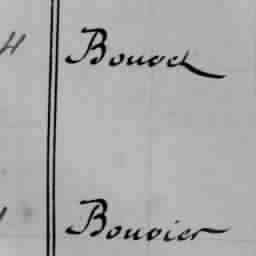 H Bouvet
Bouvier